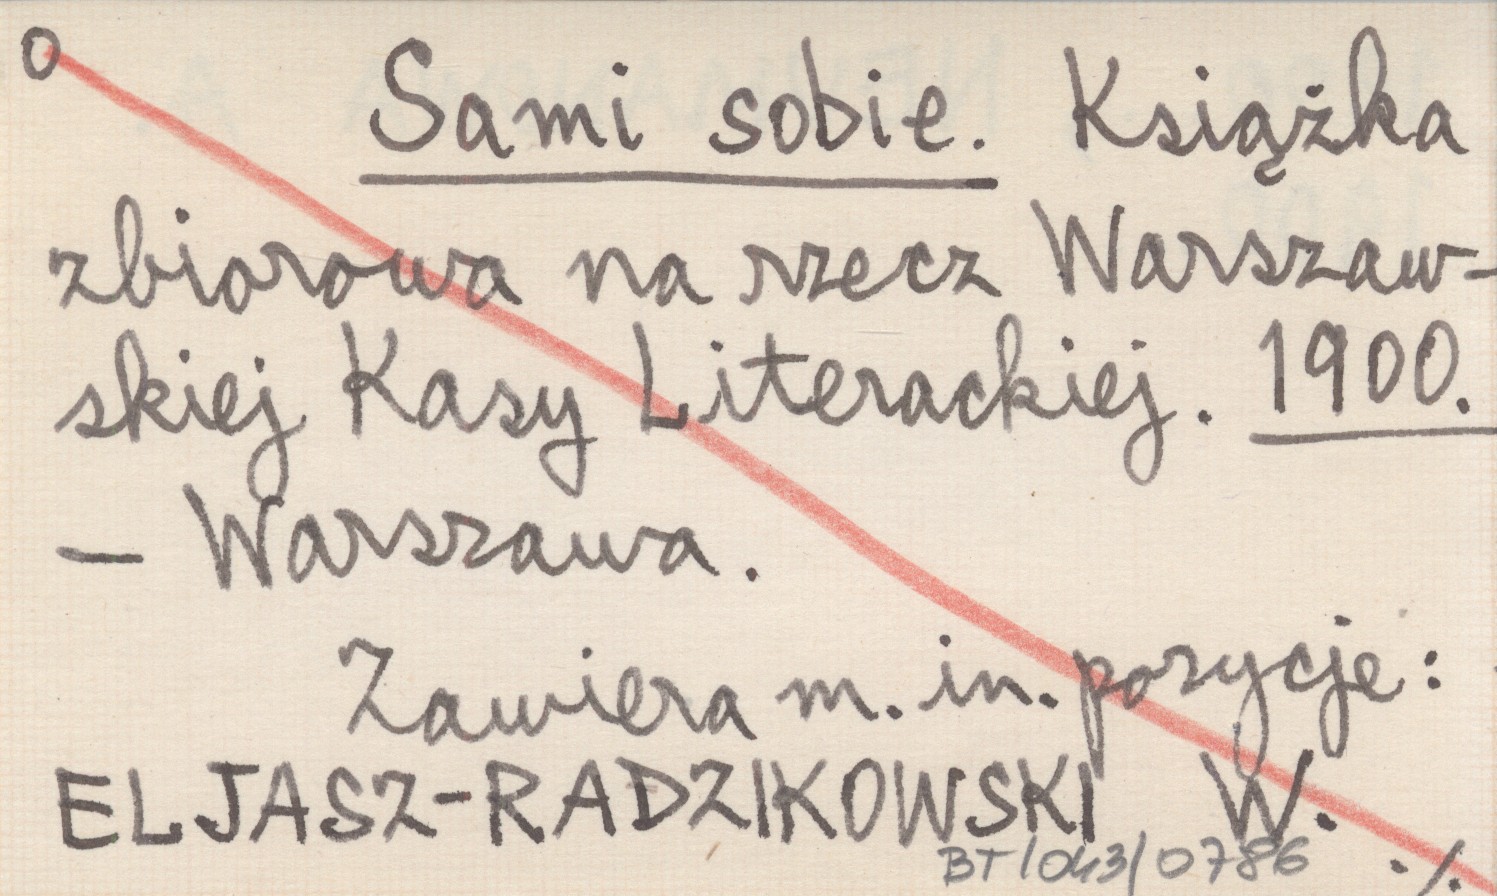 O
Sami sobie. Książka
zbiorowa na rzecz Warszaw-
skiej Kasy Literackiej. 1900.
— Warszawa.
Zawiera m. in. pozycje:
ELJASZ-RADZIKOWSKI W.
BT/043/0786
./.